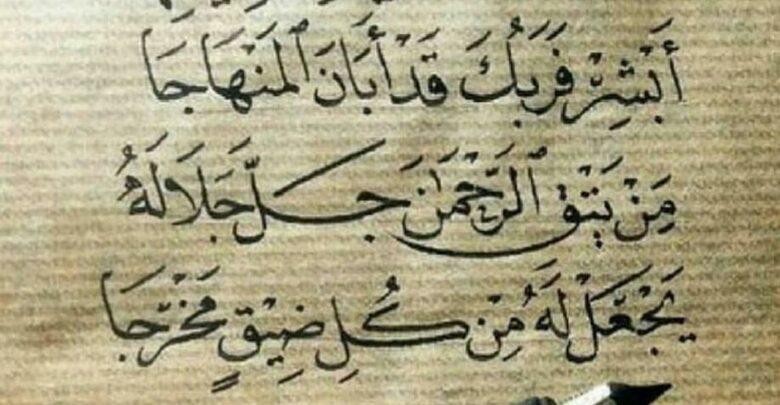 أَبْشِرْ فَرَبُّكَ قَدْ أَبَانَ الْمَنْهَاجَا
مَنْ يَتَّقِ الرَّحْمَٰنَ جَلَّ جَلَالُهُ
يَجْعَلْ لَهُ مِنْ كُلِّ ضِيْقٍ مَخْرَجَا